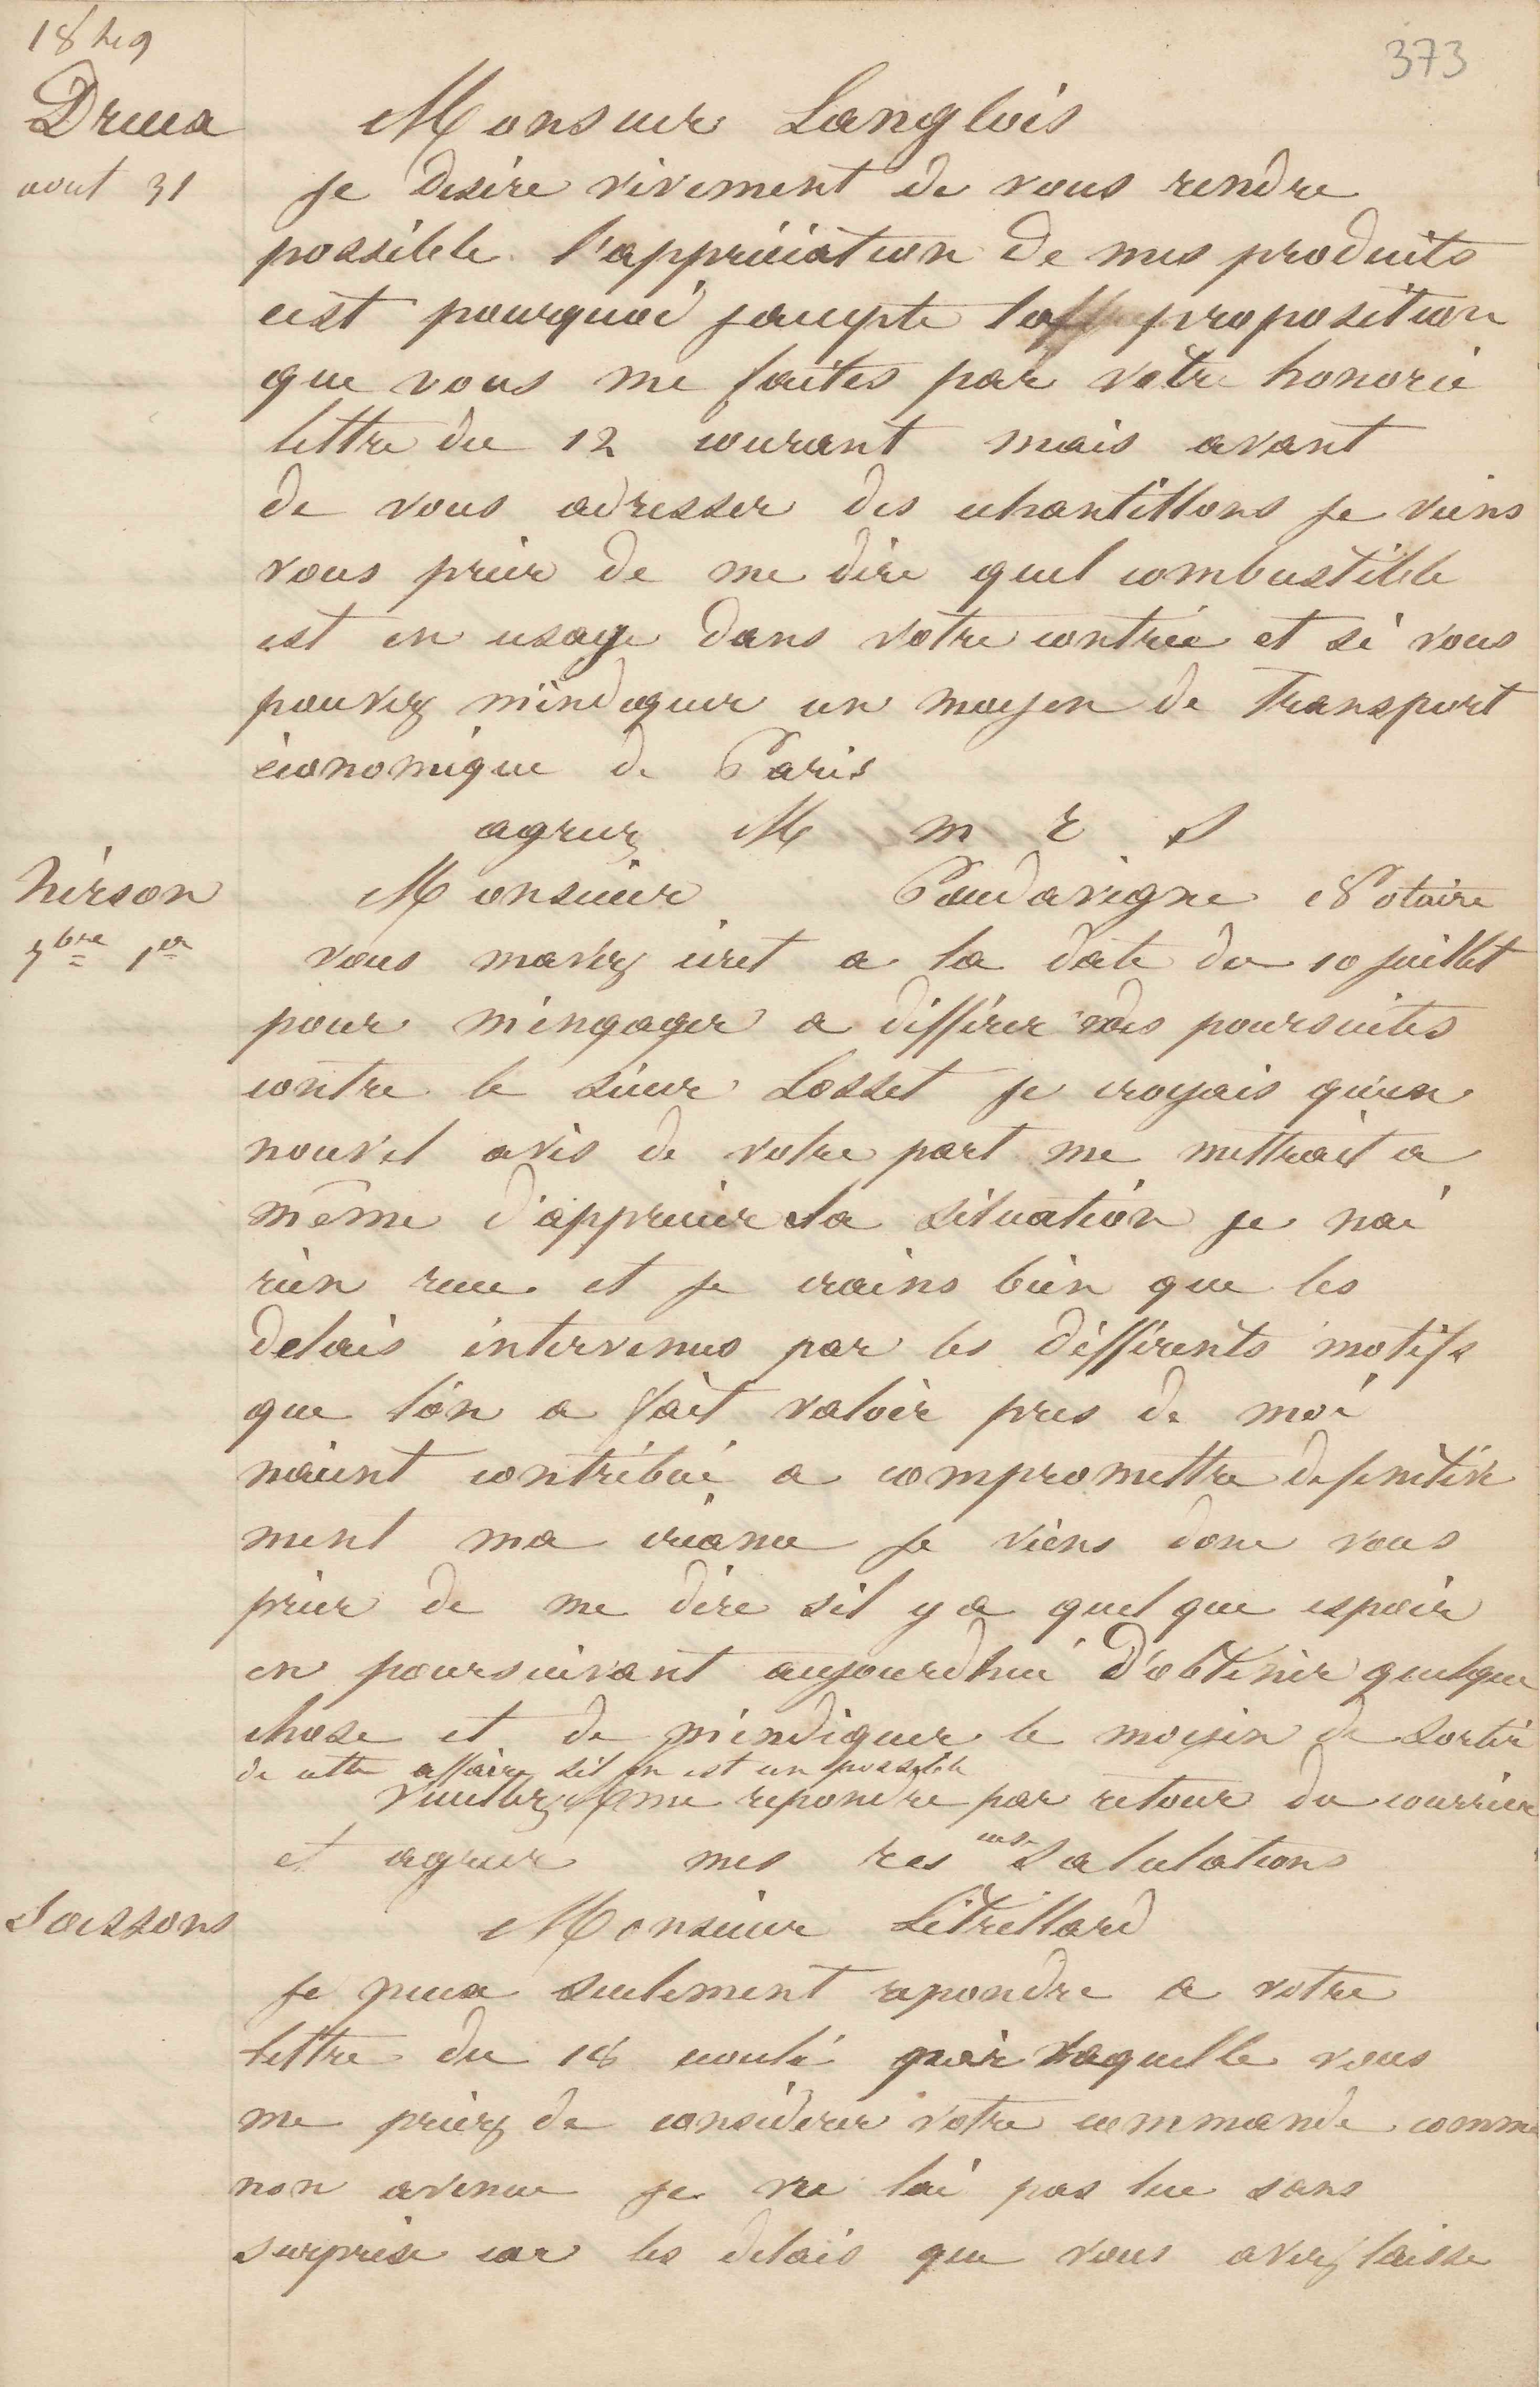 1849
373
Dreux
Monsieur Langlois
aout 31
je desire vivement de vous rendre
possible l'appréciation de mes produits
cest pourquoi jaccepte la proposition
que vous me faites par votre honorée
lettre du 12 courant mais avant
de vous adresser des echantillons je viens
vous prier de me dire quel combustible
est en usage dans votre contrée et si vous
pouvez m'indiquer un moyen de transport
économique de Paris
agreez M m r s
hirson
Monsieur Notaire
7bre 1er
vous mavez ecrit a la date du 10 juillet
pour m'engager a différer mes poursuites
contre le sieur Losset je croyais qu'un
nouvel avis de votre part me mettrait a
même d'apprecier la situation je nai
rien recu et je crains bien que les
delais intervenus par les différents motifs
que l'on a fait valoir pres de moi
naient contribué a compromettre definitive
ment ma créance je viens donc vous
prier de me dire sil y a quelque espoir
en poursuivant aujourdhui d'obtenir quelque
chose et de m'indiquer le moyen de sortir
de cette affaire sil en est un possible
Veuillez me repondre par retour du courrier
et agreer mes res euses salutations
Soissons
Monsieur Letrillard
je peux seulement repondre a votre
lettre du 18 ecoulé par laquelle vous
me priez de considerer votre commande comme
non avenue je ne lai pas lue sans
surprise car les delais que vous avez laisse